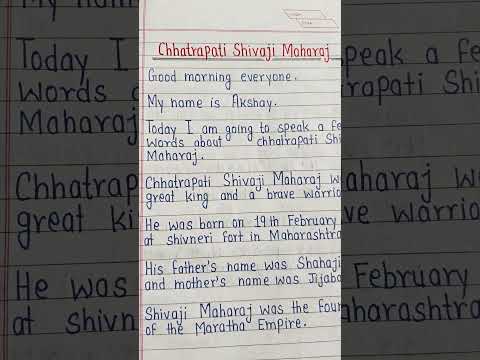 Chhatrapati Shivaji Maharaj
Good morning everyone.
My name is Akshay.
Today I am going to speak a fe
words about chhatrapati Shi
Maharaj.
Chhatrapati Shivaji Maharaj w
great king and a brave warrio
He was born on 19th February
at shivneri fort in Maharashtra
His father's name was Shahaji
and mother's name was Jijaba
Shivaji Maharaj was the foun
of the Maratha Empire.